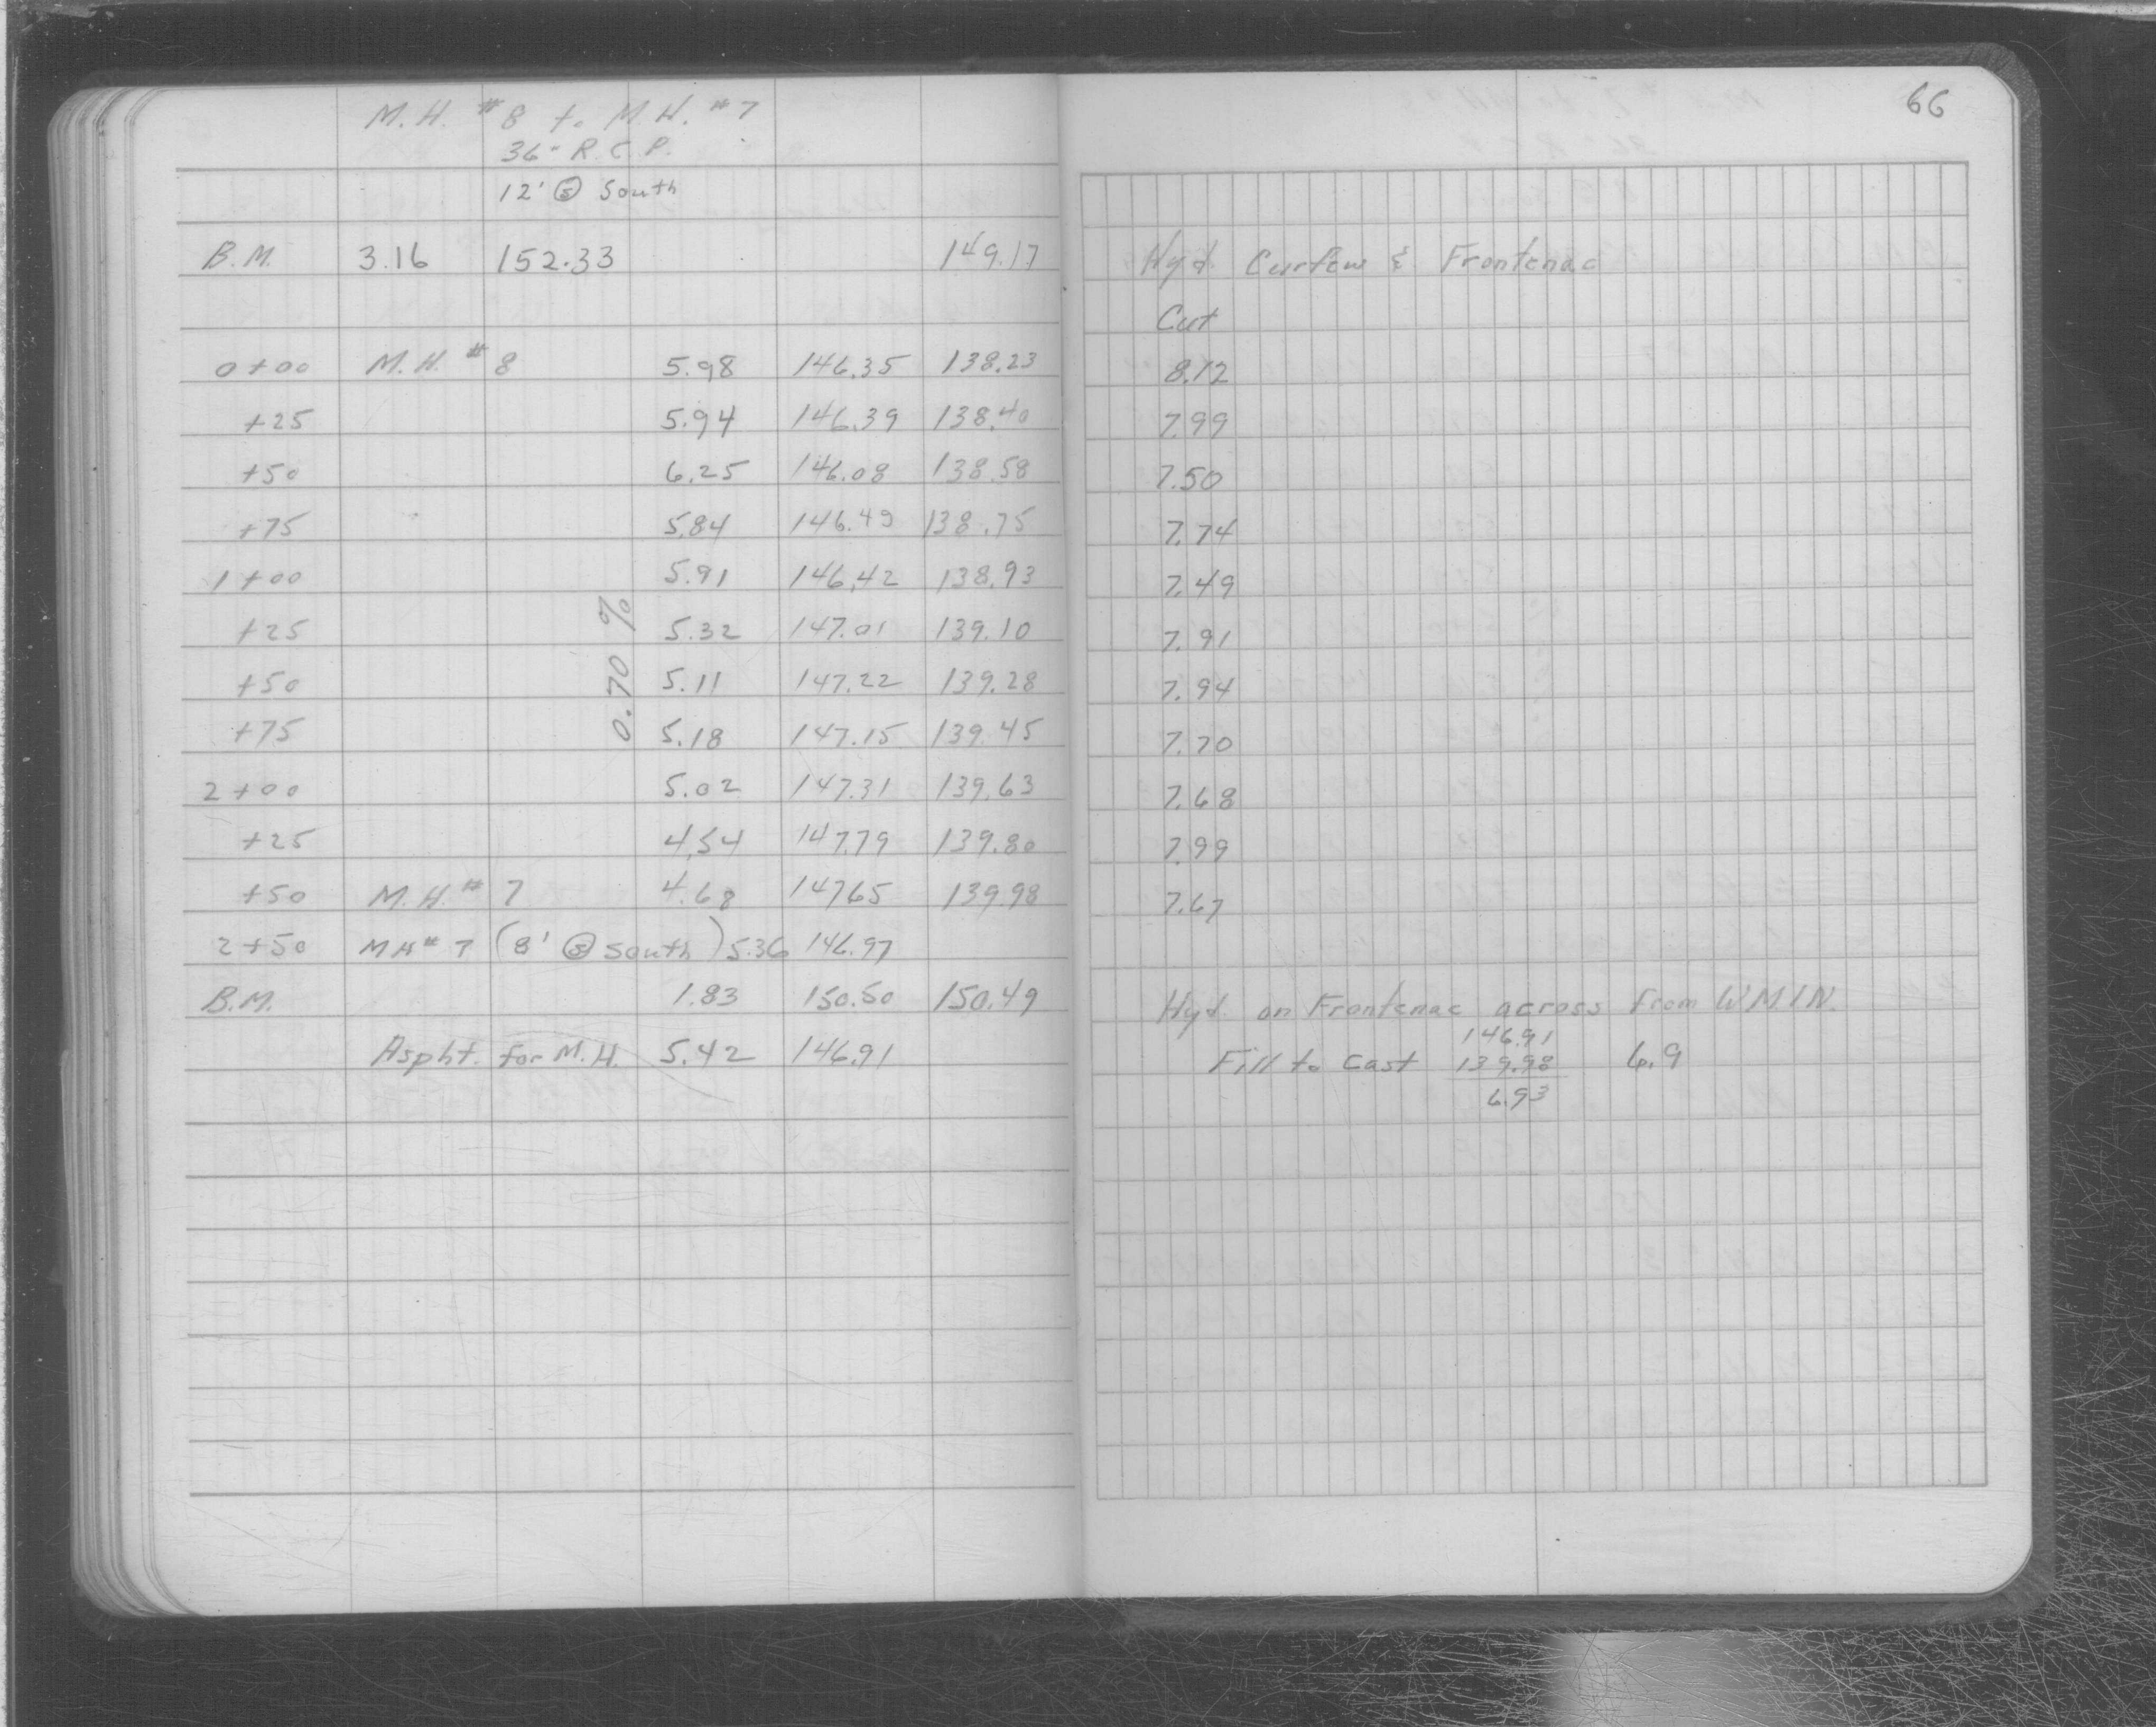 66
M.H. #8 to M.H. #7
36" R.C.P.
12' Ⓢ South
B.M. 3.16 152.33 149.17 Hyd. Curfew & Frontenac
Cut
0+00 M.H. #8 5.98 146.35 138.23 8.12
+25 5.94 146.39 138.40 7.99
+50 6.25 146.08 138.58 7.50
+75 5.84 146.49 138.75 7.74
1+00 5.91 146.42 138.93 7.49
+25 5.32 147.01 139.10 7.91
+50 5.11 147.22 139.28 7.94
+75 5.18 147.15 139.45 7.70
0.70 %
2+00 5.02 147.31 139.63 7.68
+25 4.54 147.79 139.80 7.99
+50 M.H. #7 4.68 147.65 139.98 7.67
2+50 MH #7 (8' Ⓢ South) 5.36 146.97
B.M. 1.83 150.50 150.49 Hyd. on Frontenac across from WMIN.
Aspht. for M.H. 5.42 146.91 Fill to Cast 146.91
139.98 6.9
6.93